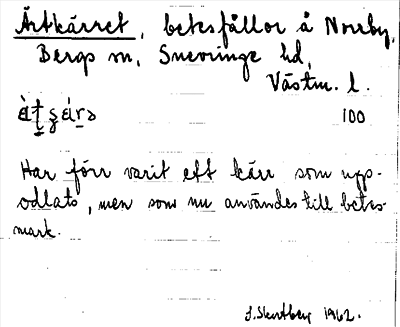 Ärtkärret, betesfållor å Norrby,
Bergs sn, Snevringe hd,
Västm. l.
100
Har förr varit ett kärr som upp-
odlats, men som nu användes till betes-
mark.
1962.